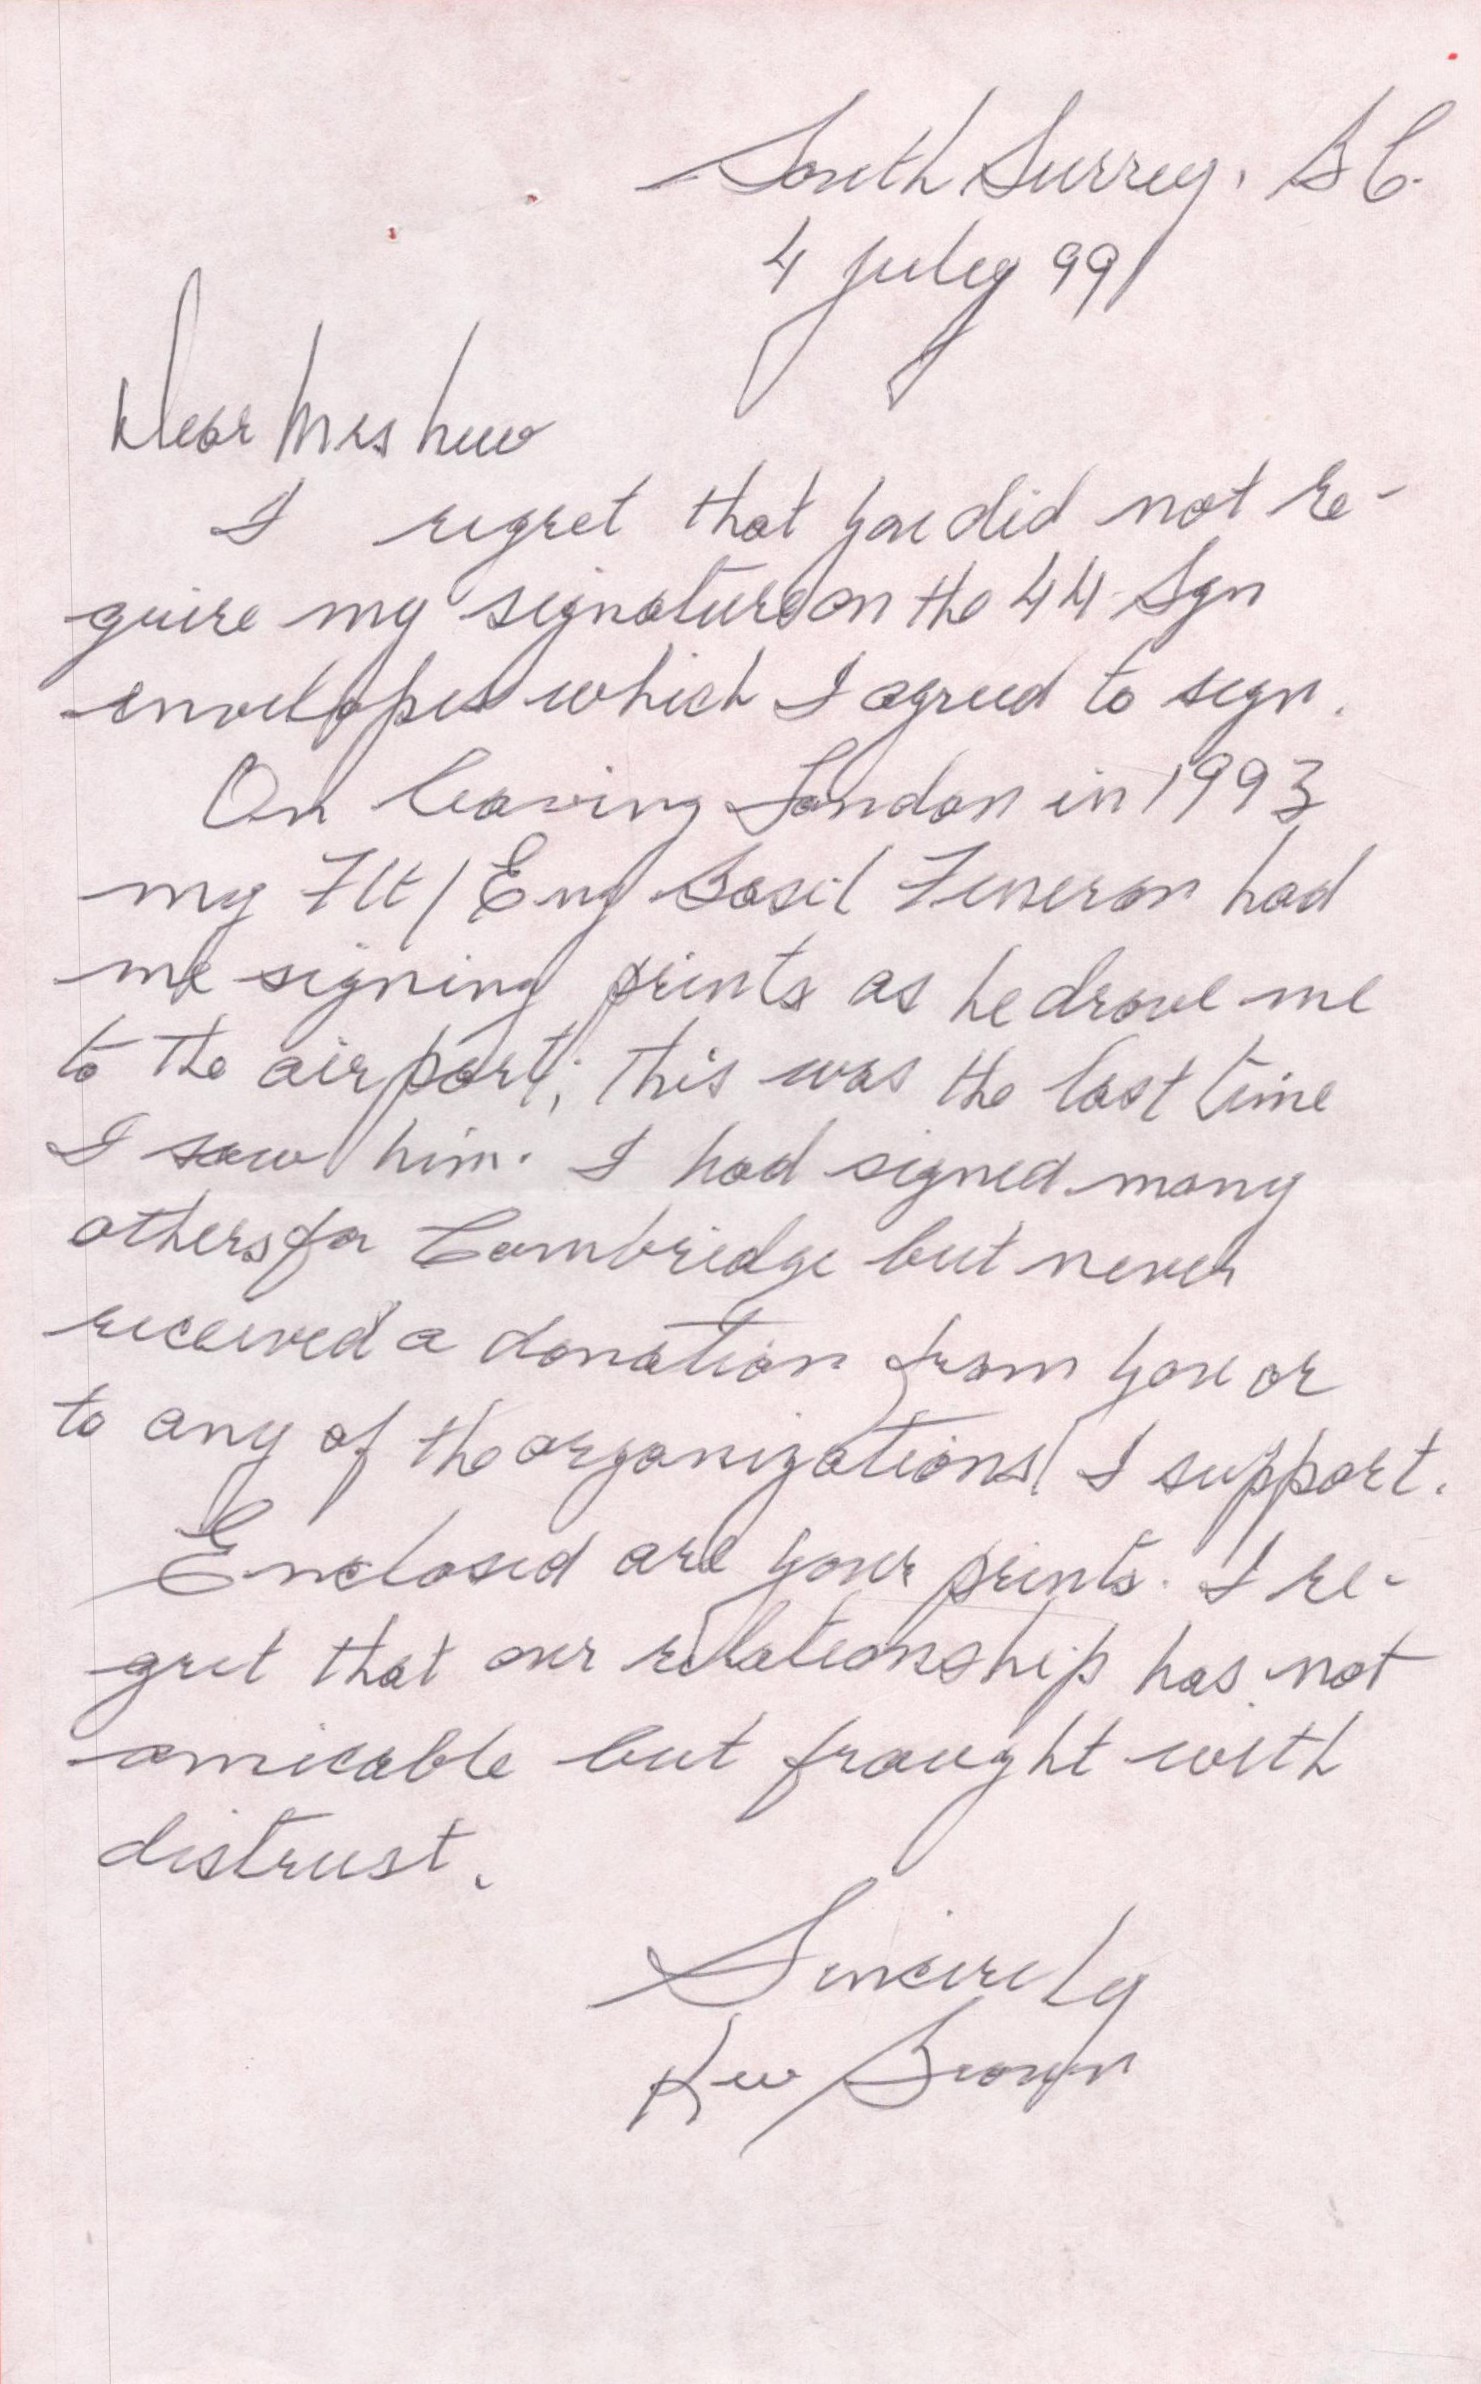 South Surrey, BC.
4 July 99
Dear Mrs
I regret that you did not re-
quire my signature on the 44 Sqn
envelopes which I agreed to sign.
On leaving London in 1993
my Flt/Eng Basil Feneron had
me signing prints as he drove me
to the airport; this was the last time
I saw him. I had signed many
others for Cambridge but never
received a donation from you or
to any of the organizations I support.
Enclosed are your prints. I re-
gret that our relationship has not
amicable but fraught with
distrust.
Sincerely
Ken Brown